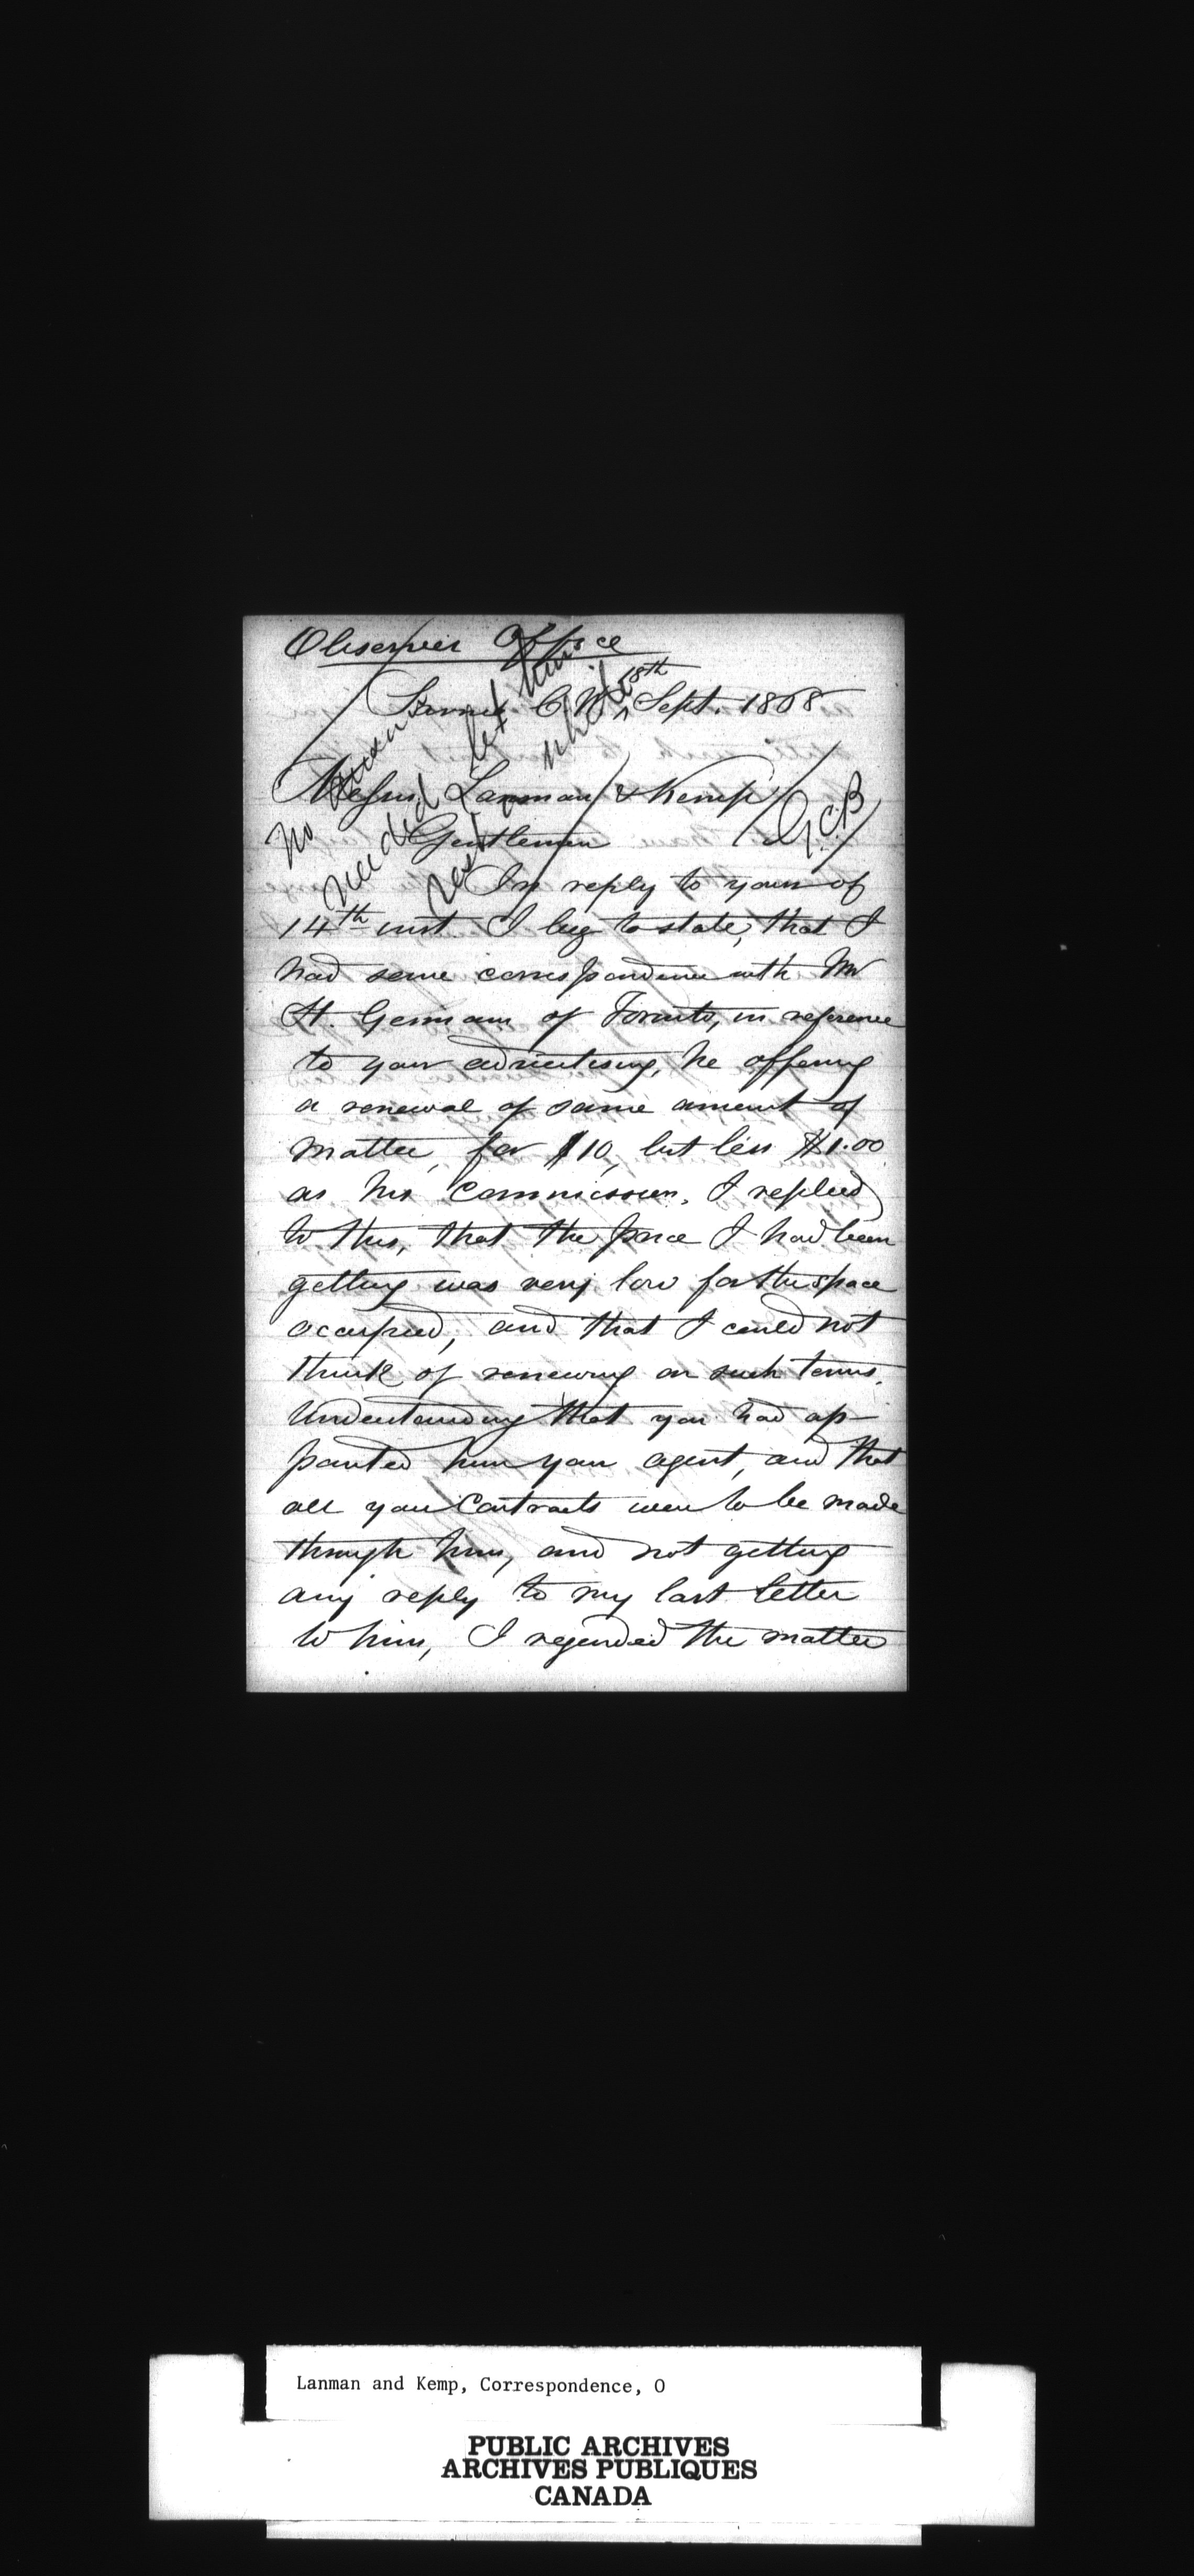 Observer Office
Sarnia C.W. 18th Sept. 1868
Messrs. Lanman & Kemp
G.C.B
Gentlemen
In reply to yours of
14th inst. I beg to state, that I
had some correspondence with Mr
St. Germain of Toronto, in reference
to your advertising, he offering
a renewal of same amount of
matter, for $10, but less $1.00
as his commission. I replied
to this, that the price I had been
getting was very low for the space
occupied, and that I could not
think of renewing on such terms.
Understanding that you had ap-
pointed him your agent, and that
all your Contracts were to be made
through him, and not getting
any reply to my last letter
to him, I regarded the matter
No
needed let him
rest
Lanman and Kemp, Correspondence, O
PUBLIC ARCHIVES
ARCHIVES PUBLIQUES
CANADA